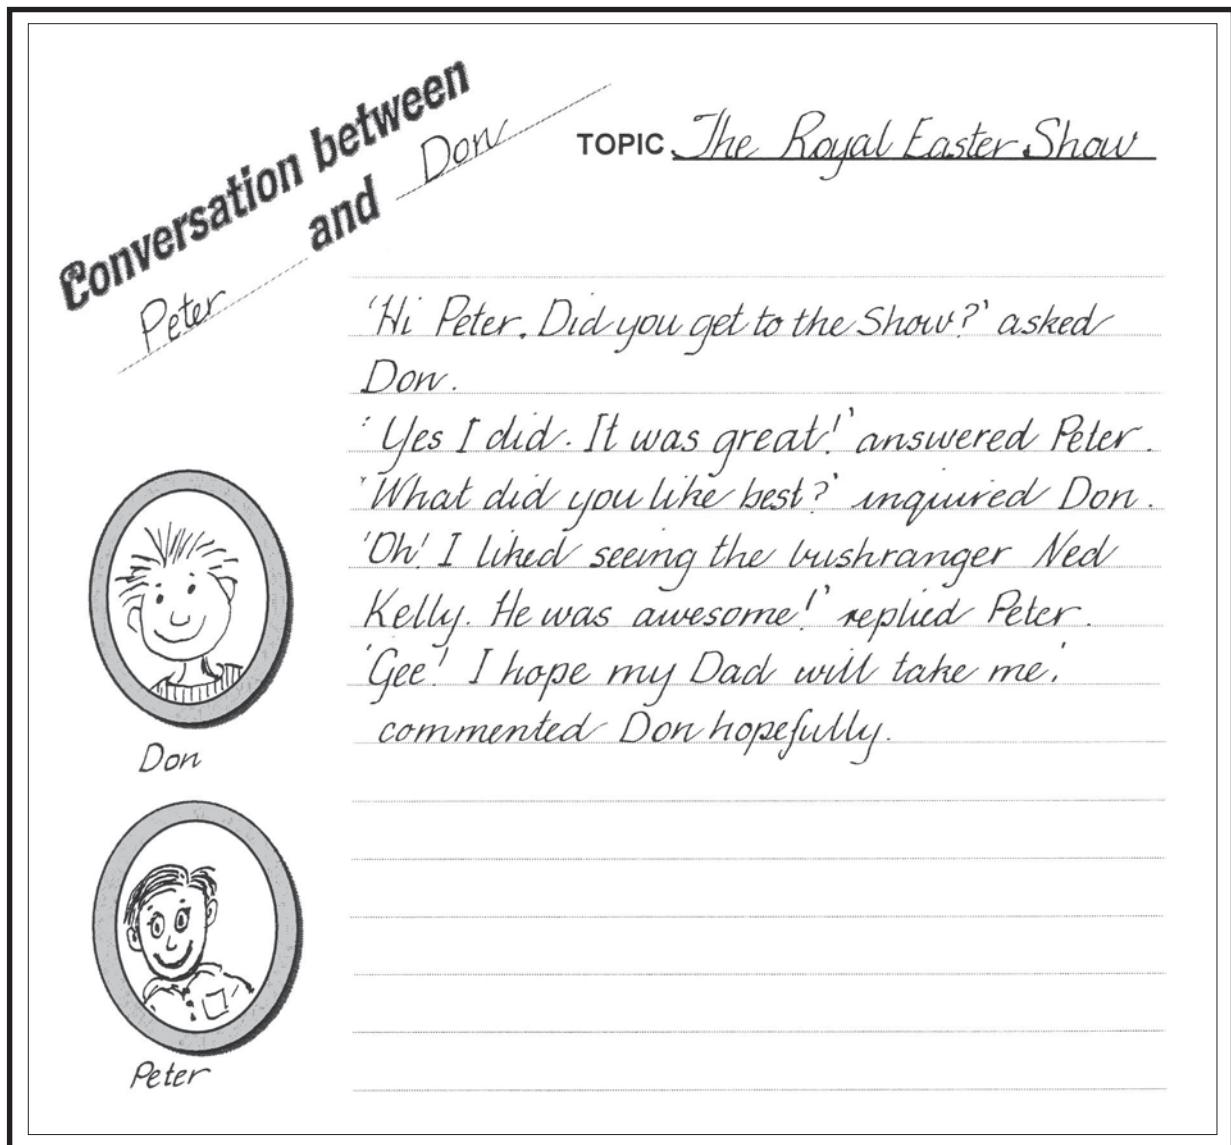 Conversation between
Peter and Don
TOPIC The Royal Easter Show
'Hi Peter. Did you get to the Show?' asked
Don.
'Yes I did. It was great!' answered Peter.
'What did you like best?' inquired Don.
'Oh! I liked seeing the bushranger Ned
Kelly. He was awesome!' replied Peter.
'Gee! I hope my Dad will take me.'
commented Don hopefully.
Don
Peter